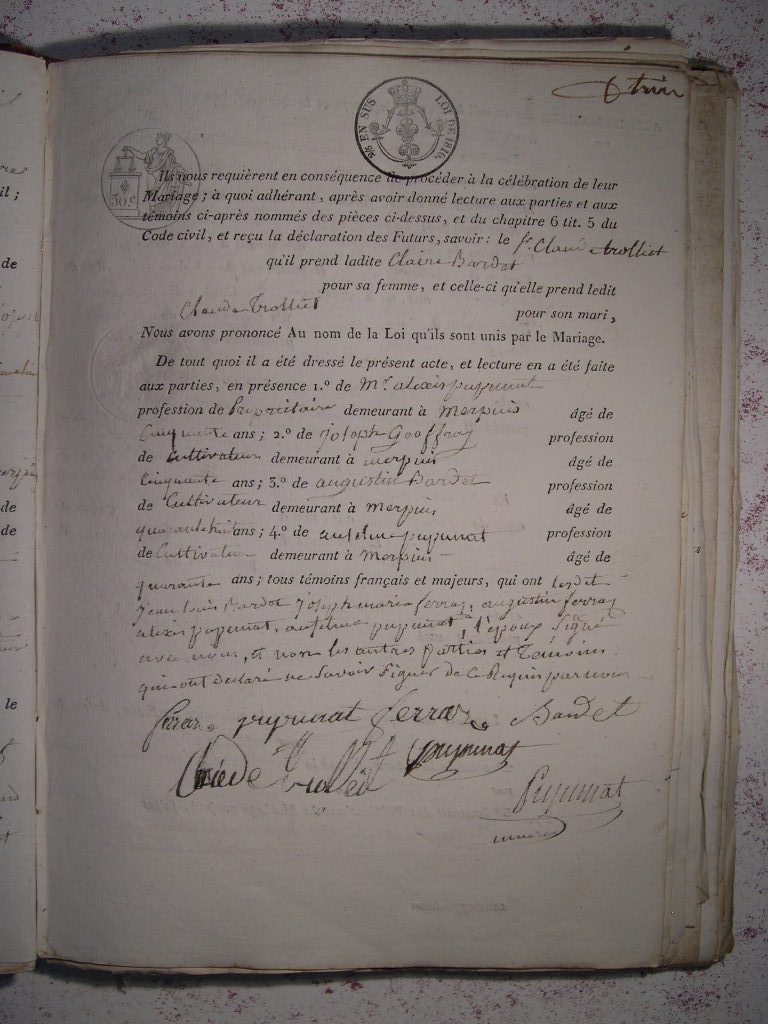 2/5 EN SUS LOI DE 1816.
50.c
Ils nous requièrent en conséquence de procéder à la célébration de leur
Mariage ; à quoi adhérant, après avoir donné lecture aux parties et aux
témoins ci-après nommés des pièces ci-dessus, et du chapitre 6 tit. 5 du
Code civil, et reçu la déclaration des Futurs, savoir : le Sr Claude trolliet
qu'il prend ladite Claire Bardet
pour sa femme, et celle-ci qu'elle prend ledit
Claude Trolliet pour son mari,
Nous avons prononcé Au nom de la Loi qu'ils sont unis par le Mariage.
De tout quoi il a été dressé le présent acte, et lecture en a été faite
aux parties, en présence 1.º de Mr alexis puyunat
profession de Propriétaire demeurant à merpuis âgé de
Cinquante ans ; 2.º de joseph Geoffray profession
de Cultivateur demeurant à merpuis âgé de
Cinquante ans ; 3.º de augustin Bardet profession
de Cultivateur demeurant à merpuis âgé de
quarante huit ans ; 4.º de anselme puyunat profession
de Cultivateur demeurant à merpuis âgé de
quarante ans ; tous témoins français et majeurs, qui ont lesdit
jean louis Bardet joseph marie ferraz, augustin ferraz
alexis puyunat, anselme puyunat, l'époux Signé
avec nous, et non les autres parties et Témoins
qui ont declaré ne Savoir Signer de ce Requis par nous
ferraz puyunat ferraz Bardet
Claude trolliet puyunat
Puyunat
maire